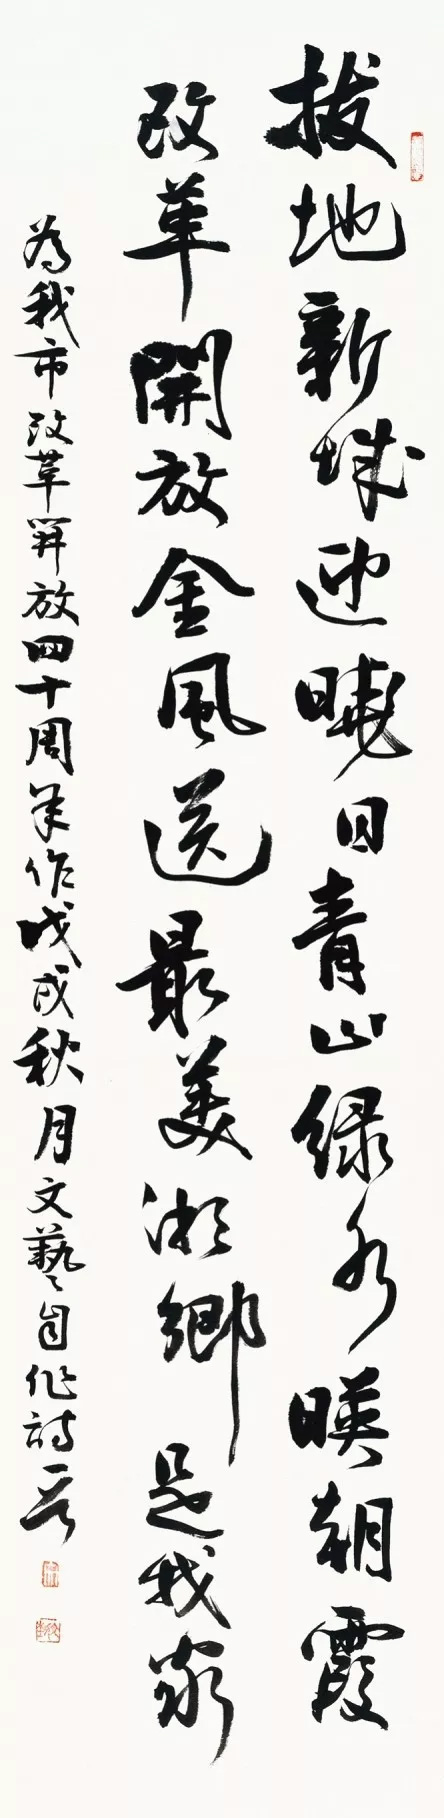 拔地新城迎曉日青山绿水暎朝霞
改革開放金風送最美湘鄉是我家
為我市改革開放四十周年作戊戌秋月文藝自作詩一首